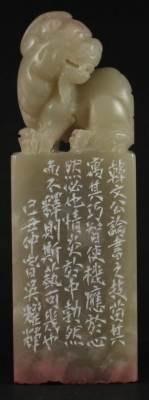 韓文公論書之技苟其
寓其巧智使機應於心
然必也情炎於中勃然
而不釋則斯藝可幾也
己丑仲春吳耀輝